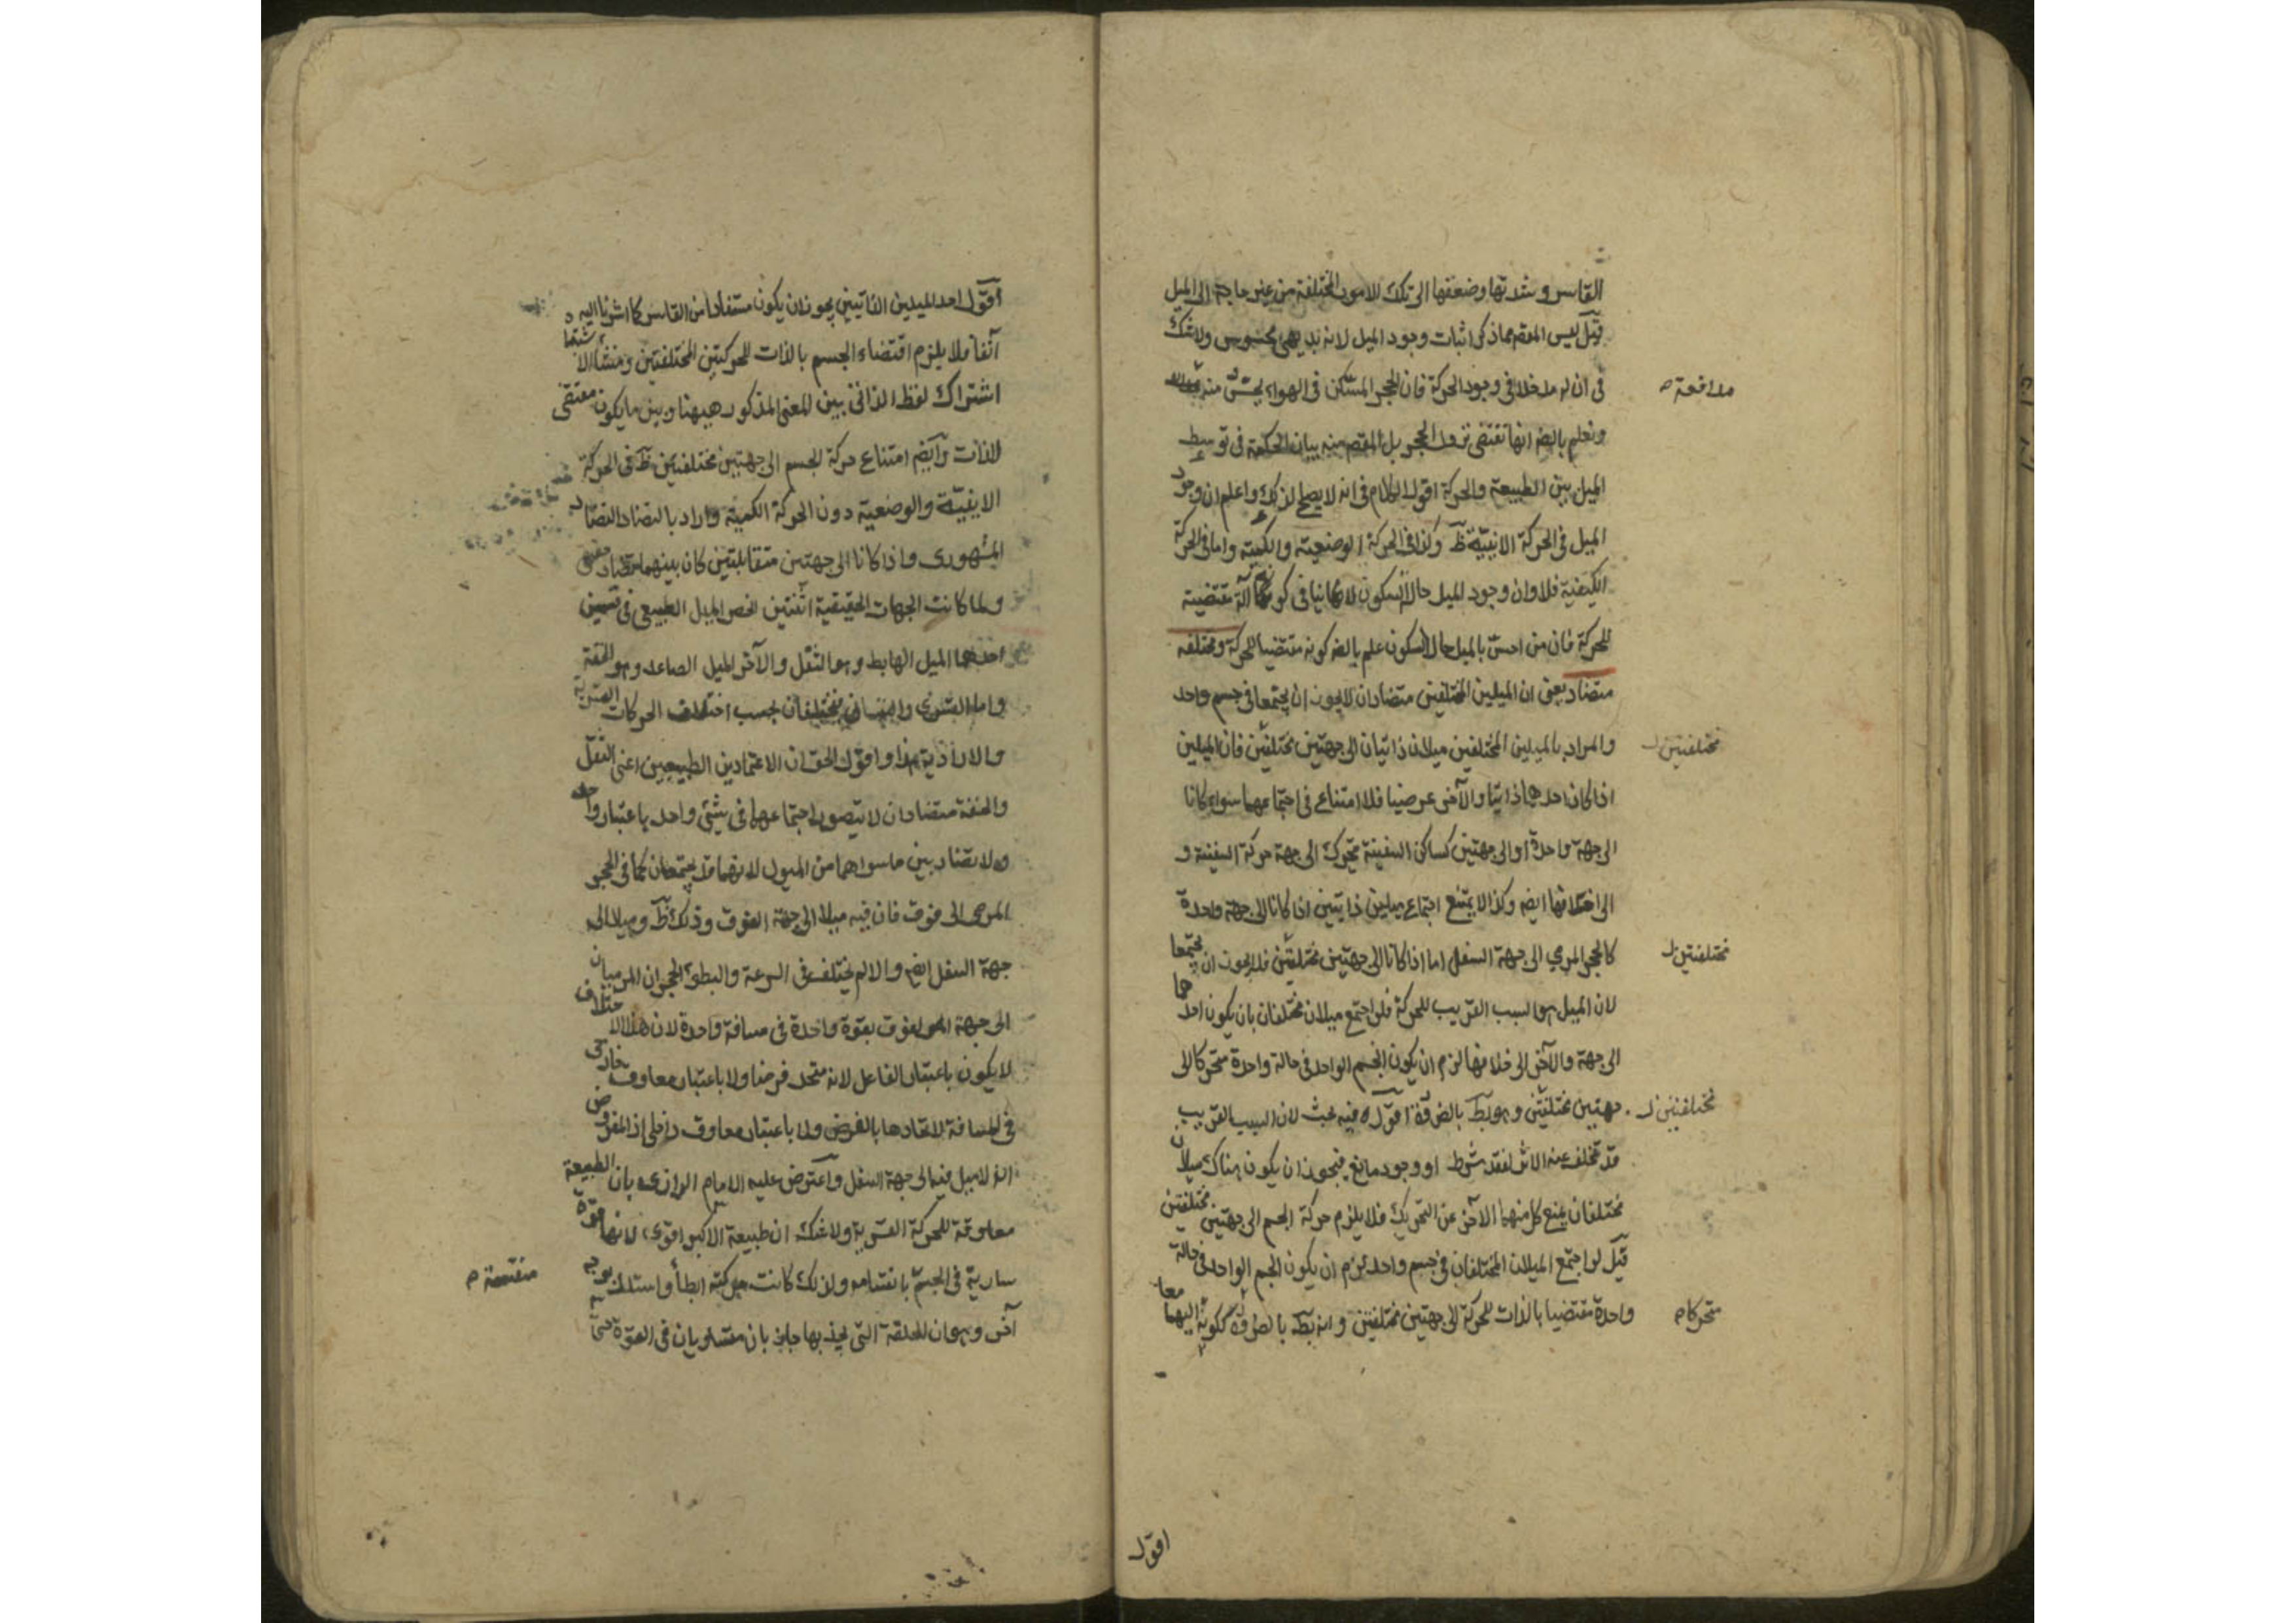 القاسر وشدتها وضعفها الى تلك الامور المختلفة من غير حاجة الى الميل
قيل ليس المقصم مما ذكر اثبات وجود الميل لانه بديهي محسوس ولا شك
فى ان له مدخلا فى وجود الحركة فان الحجر المسكن فى الهواء يحس منه
مدافعة م
ونعلم بالضم انها تقتضى نزول الحجر بل المقصم منه بيان الحكمة فى توسط
الميل بين الطبيعة والحركة اقول الكلام فى انه لا يصلح لذلك واعلم ان وجود
الميل فى الحركة الاينية ظ وكذا فى الحركة الوضعية والكمية واما فى الحركة
الكيفية فلا وان وجود الميل حال السكون لا ينافى كونه آلة مقتضية
للحركة فان من احس بالميل حال السكون علم بالضم كونه مقتضيا للحركة ومختلفه
متضاد يعنى ان الميلين المختلفين متضادان لا يجوز ان يجتمعا فى جسم واحد
والمراد بالميلين المختلفين ميلان ذاتيان الى جهتين مختلفتين فان الميلين
مختلفتين ل
اذا كان احدهما ذاتيا والآخر عرضيا فلا امتناع فى اجتماعهما سواء كانا
الى جهة واحدة او الى جهتين كساكن السفينة يتحرك الى جهة حركة السفينة و
الى خلافها ايضم وكذا لا يمتنع اجتماع ميلين ذاتيين اذا كانا الى جهة واحدة
كالحجر المرمي الى جهة السفل اما اذا كانا الى جهتين مختلفتين فلا يجوز ان يجتمعا
مختلفتين ل
لان الميل هو السبب القريب للحركة فلو اجتمع ميلان مختلفان بان يكون احدهما
الى جهة والآخر الى خلافها لزم ان يكون الجسم الواحد فى حالة واحدة متحركا الى
جهتين مختلفتين وهو بط بالضرورة اقول فيه بحث لان السبب القريب
مختلفتين ل
قد تخلف عنه الاثر لفقد شرط او وجود مانع فيجوز ان يكون هناك ميلان
مختلفان يمنع كل منهما الآخر عن التحريك فلا يلزم حركة الجسم الى جهتين مختلفتين
قيل لو اجتمع الميلان المختلفان فى جسم واحد لزم ان يكون الجسم الواحد فى حالة
واحدة مقتضيا بالذات للحركة الى جهتين مختلفتين وانه بط بالضرورة ككونه اليهما معا
متحركا م
اقول
اقول احد الميلين الذاتيين يجوز ان يكون مستفادا من القاسر كما اشرنا اليه
آنفا فلا يلزم اقتضاء الجسم بالذات للحركتين المختلفتين ومنشأ الاشتباه
اشتراك لفظ الذاتى بين المعنى المذكور ههنا وبين ما يكون مقتضى
لذات وآيضم امتناع حركة الجسم الى جهتين مختلفتين ظ فى الحركة
الاينية والوضعية دون الحركة الكمية واراد بالتضاد التضاد
المشهورى واذا كانا الى جهتين متقابلتين كان بينهما تضاد حقيقى
ولما كانت الجهات الحقيقية اثنتين انحصر الميل الطبيعى فى قسمين
احدهما الميل الهابط وهو الثقل والآخر الميل الصاعد وهو الخفة
واما القسرى والنفسانى فيختلفان بحسب اختلاف الحركات القسرية
والارادية هذا واقول الحق ان الاعتمادين الطبيعيين اعنى الثقل
والخفة متضادان لا يتصور اجتماعهما فى شئ واحد باعتبار واحد
ولا تضاد بين ما سواهما من الميول لانهما قد يجتمعان كما فى الحجر
المرمى الى فوق فان فيه ميلا الى جهة الفوق وذلك ظ وميلا الى
جهة السفل ايضم والا لم يختلف فى السرعة والبطؤ الحجران المرميان
الى جهة الفوق بقوة واحدة فى مسافة واحدة لان هذا الاختلاف
لا يكون باعتبار الفاعل لانه متحد فرضا ولا باعتبار معاوق خارجى
فى المسافة لاتحادها بالفرض ولا باعتبار معاوق داخلى اذ المفروض
انه لا ميل فيه الى جهة السفل واعترض عليه الامام الرازى بان الطبيعة
معاوقة للحركة القسرية ولا شك ان طبيعة الاكبر اقوى لانها قوة
سارية فى الجسم بانقسامه ولذلك كانت حركته ابطأ واستدلت بوجه
منقسمة م
آخر وهو ان الحلقة التى يجذبها جاذبان متساويان فى القوة حتى